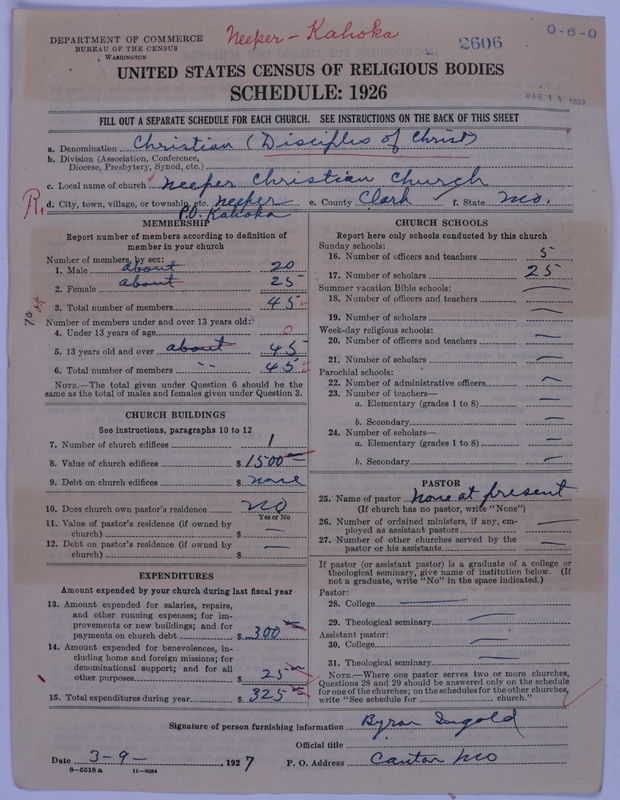 Neeper - Kahoka
2606
0-6-0
DEPARTMENT OF COMMERCE
BUREAU OF THE CENSUS
WASHINGTON
UNITED STATES CENSUS OF RELIGIOUS BODIES
SCHEDULE: 1926
FILL OUT A SEPARATE SCHEDULE FOR EACH CHURCH. SEE INSTRUCTIONS ON THE BACK OF THIS SHEET
a. Denomination Christian (Disciples of Christ)
b. Division (Association, Conference, Diocese, Presbytery, Synod, etc.)
c. Local name of church Neeper Christian Church
R. d. City, town, village, or township, etc. Neeper e. County Clark f. State Mo.
P.O. Kahoka
MEMBERSHIP
Report number of members according to definition of
member in your church
Number of members, by sex:
1. Male about 20
2. Female about 25
3. Total number of members 45
Number of members under and over 13 years old:
4. Under 13 years of age 0
5. 13 years old and over about 45
6. Total number of members " " 45
NOTE.—The total given under Question 6 should be
same as the total of males and females given under Question 3.
CHURCH BUILDINGS
See instructions, paragraphs 10 to 12
7. Number of church edifices 1
8. Value of church edifices $ 1500
9. Debt on church edifices $ none
10. Does church own pastor's residence no
Yes or No
11. Value of pastor's residence (if owned by
church) $ —
12. Debt on pastor's residence (if owned by
church) $ —
EXPENDITURES
Amount expended by your church during last fiscal year
13. Amount expended for salaries, repairs,
and other running expenses; for im-
provements or new buildings; and for
payments on church debt $ 300
14. Amount expended for benevolences, in-
cluding home and foreign missions; for
denominational support; and for all
other purposes 25
15. Total expenditures during year $ 325
CHURCH SCHOOLS
Report here only schools conducted by this church
Sunday schools:
16. Number of officers and teachers 5
17. Number of scholars 25
Summer vacation Bible schools:
18. Number of officers and teachers —
19. Number of scholars —
Week-day religious schools:
20. Number of officers and teachers —
21. Number of scholars —
Parochial schools:
22. Number of administrative officers —
23. Number of teachers—
a. Elementary (grades 1 to 8) —
b. Secondary —
24. Number of scholars—
a. Elementary (grades 1 to 8) —
b. Secondary —
PASTOR
25. Name of pastor none at present
(If church has no pastor, write "None")
26. Number of ordained ministers, if any, em-
ployed as assistant pastors —
27. Number of other churches served by the
pastor or his assistants —
If pastor (or assistant pastor) is a graduate of a college or
theological seminary, give name of institution below. (If
not a graduate, write "No" in the space indicated.)
Pastor:
28. College —
29. Theological seminary —
Assistant pastor:
30. College —
31. Theological seminary —
NOTE.—Where one pastor serves two or more churches,
Questions 28 and 29 should be answered only on the schedule
for one of the churches; on the schedules for the other churches,
write "See schedule for ______ church."
Signature of person furnishing information Byron Ingold
Official title
Date 3-9- 1927 P. O. Address Canton Mo
8—5518 a 11—9034